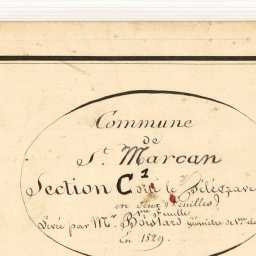 Commune
de
St. Marcan
Section C1 dite le
en deux feuilles
1ère feuille
Levée par Mr. Boistard géomètre de 1ère
En 1829.